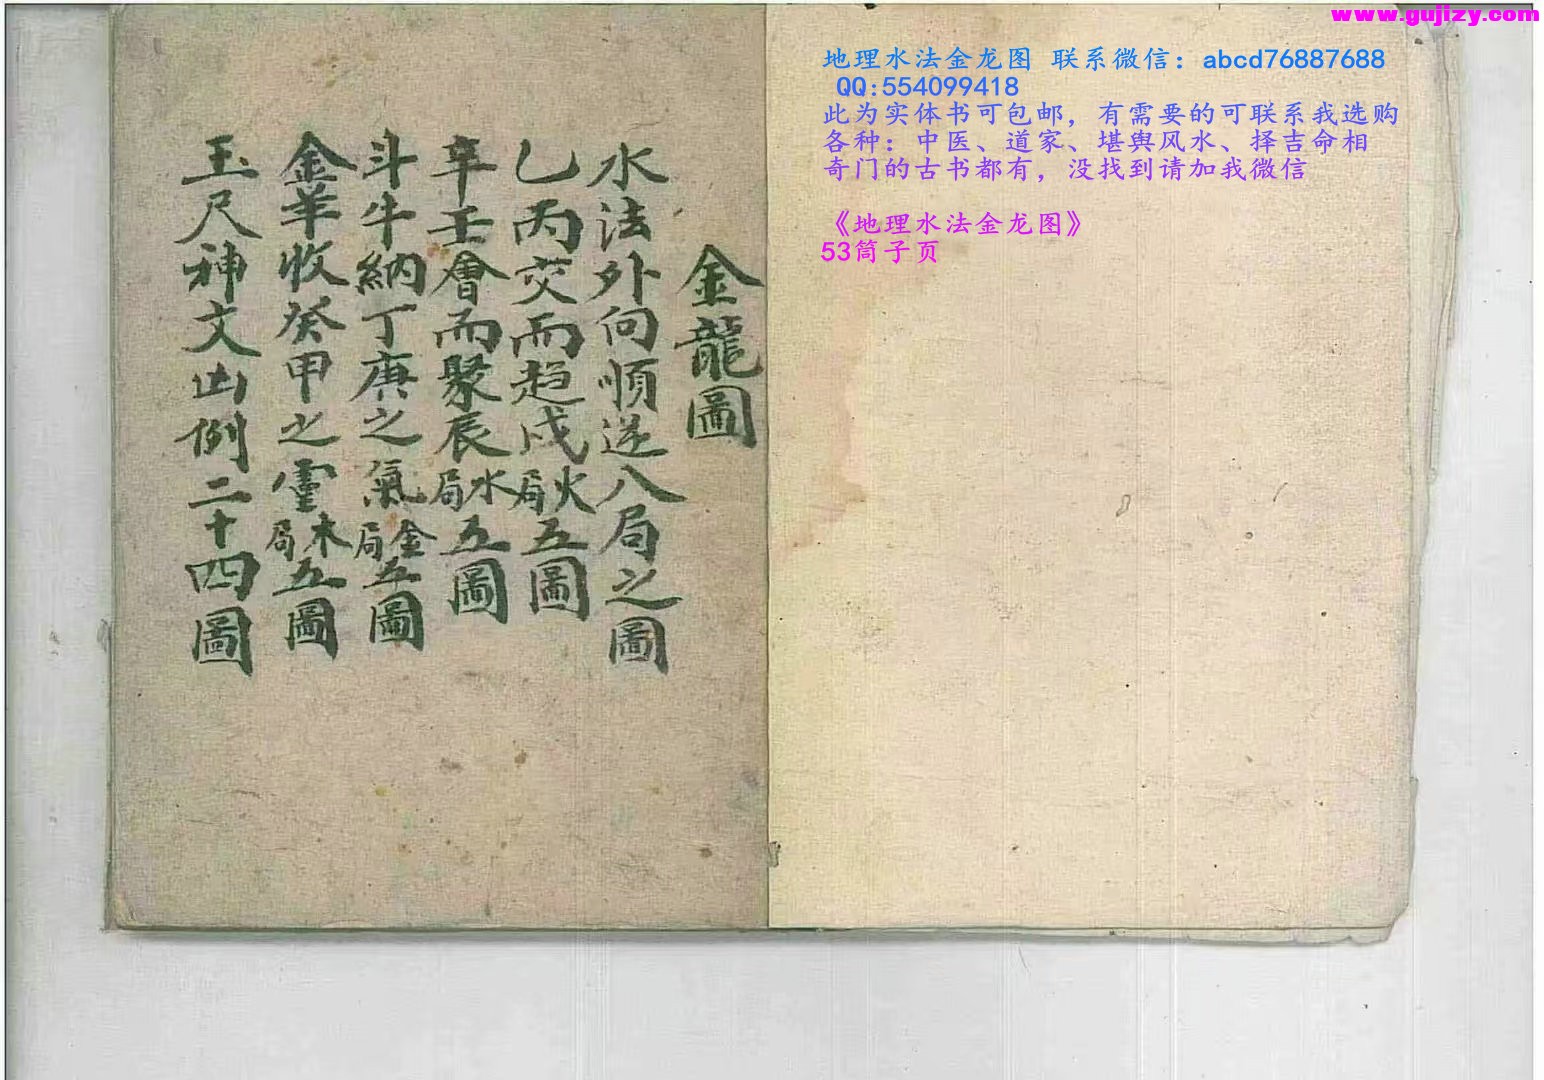 www.gujizy.com
地理水法金龙图 联系微信：abcd76887688
QQ:554099418
此为实体书可包邮，有需要的可联系我选购
各种：中医、道家、堪舆风水、择吉命相
奇门的古书都有，没找到请加我微信
《地理水法金龙图》
53筒子页
金龍圖
水法外向順逆八局之圖
乙丙交而趨戌火局五圖
辛壬會而聚辰水局五圖
斗牛納丁庚之氣金局五圖
金羊收癸甲之靈木局五圖
玉尺神文凶例二十四圖